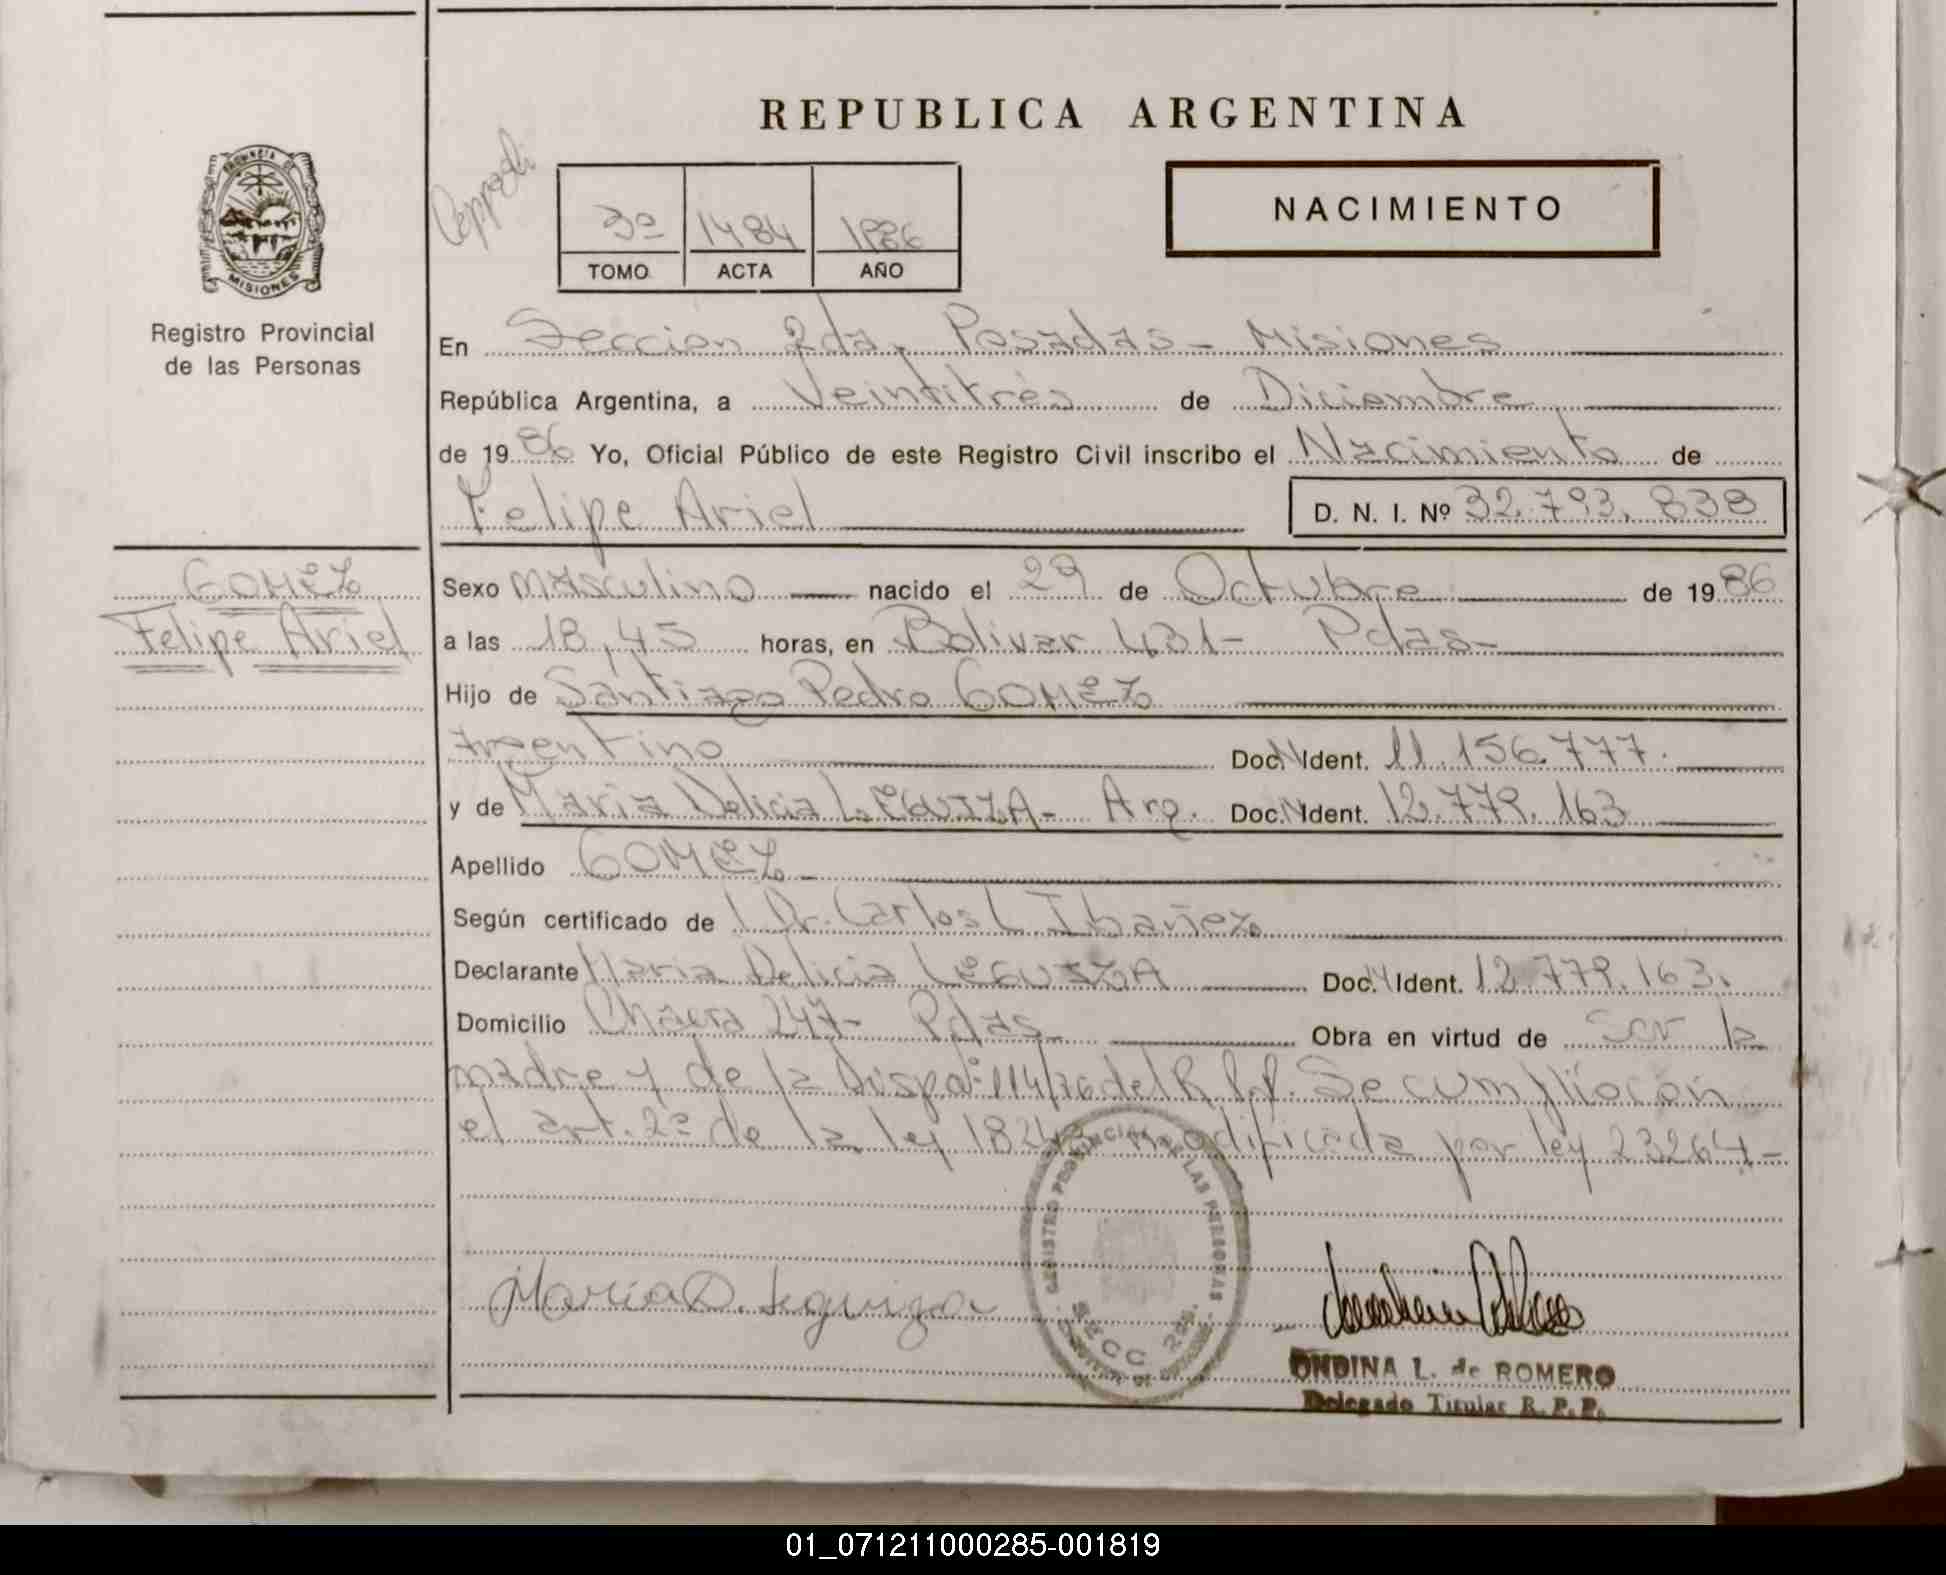 REPUBLICA ARGENTINA
PROVINCIA DE
MISIONES
Registro Provincial
de las Personas
3º 1484 1986
TOMO ACTA AÑO
NACIMIENTO
En Sección 2da, Posadas - Misiones
República Argentina, a Veintitrés de Diciembre
de 1986 Yo, Oficial Público de este Registro Civil inscribo el Nacimiento de
Felipe Ariel D. N. I. Nº 32.793.838
GOMEZ
Felipe Ariel
Sexo masculino nacido el 29 de Octubre de 1986
a las 18,45 horas, en Bolivar 431- Pdas-
Hijo de Santiago Pedro GOMEZ
argentino Doc. Ident. 11.156.777.
y de Maria Delicia LEGUIZA- Arg. Doc. Ident. 12.779.163
Apellido GOMEZ-
Según certificado de Dr. Carlos L Ibañez
Declarante Maria Delicia LEGUIZA Doc. Ident. 12.779.163.
Domicilio 247- Pdas- Obra en virtud de ser la
madre y de la Dispoº: 114/76 del R.P.P. Se cumplio con
el art. 2º de la ley 18248 modificada por ley 23264-
REGISTRO PROVINCIAL DE LAS PERSONAS
SECC 2da.
Maria D. Leguiza
ONDINA L. de ROMERO
Delegado Titular R. P. P.
01_071211000285-001819